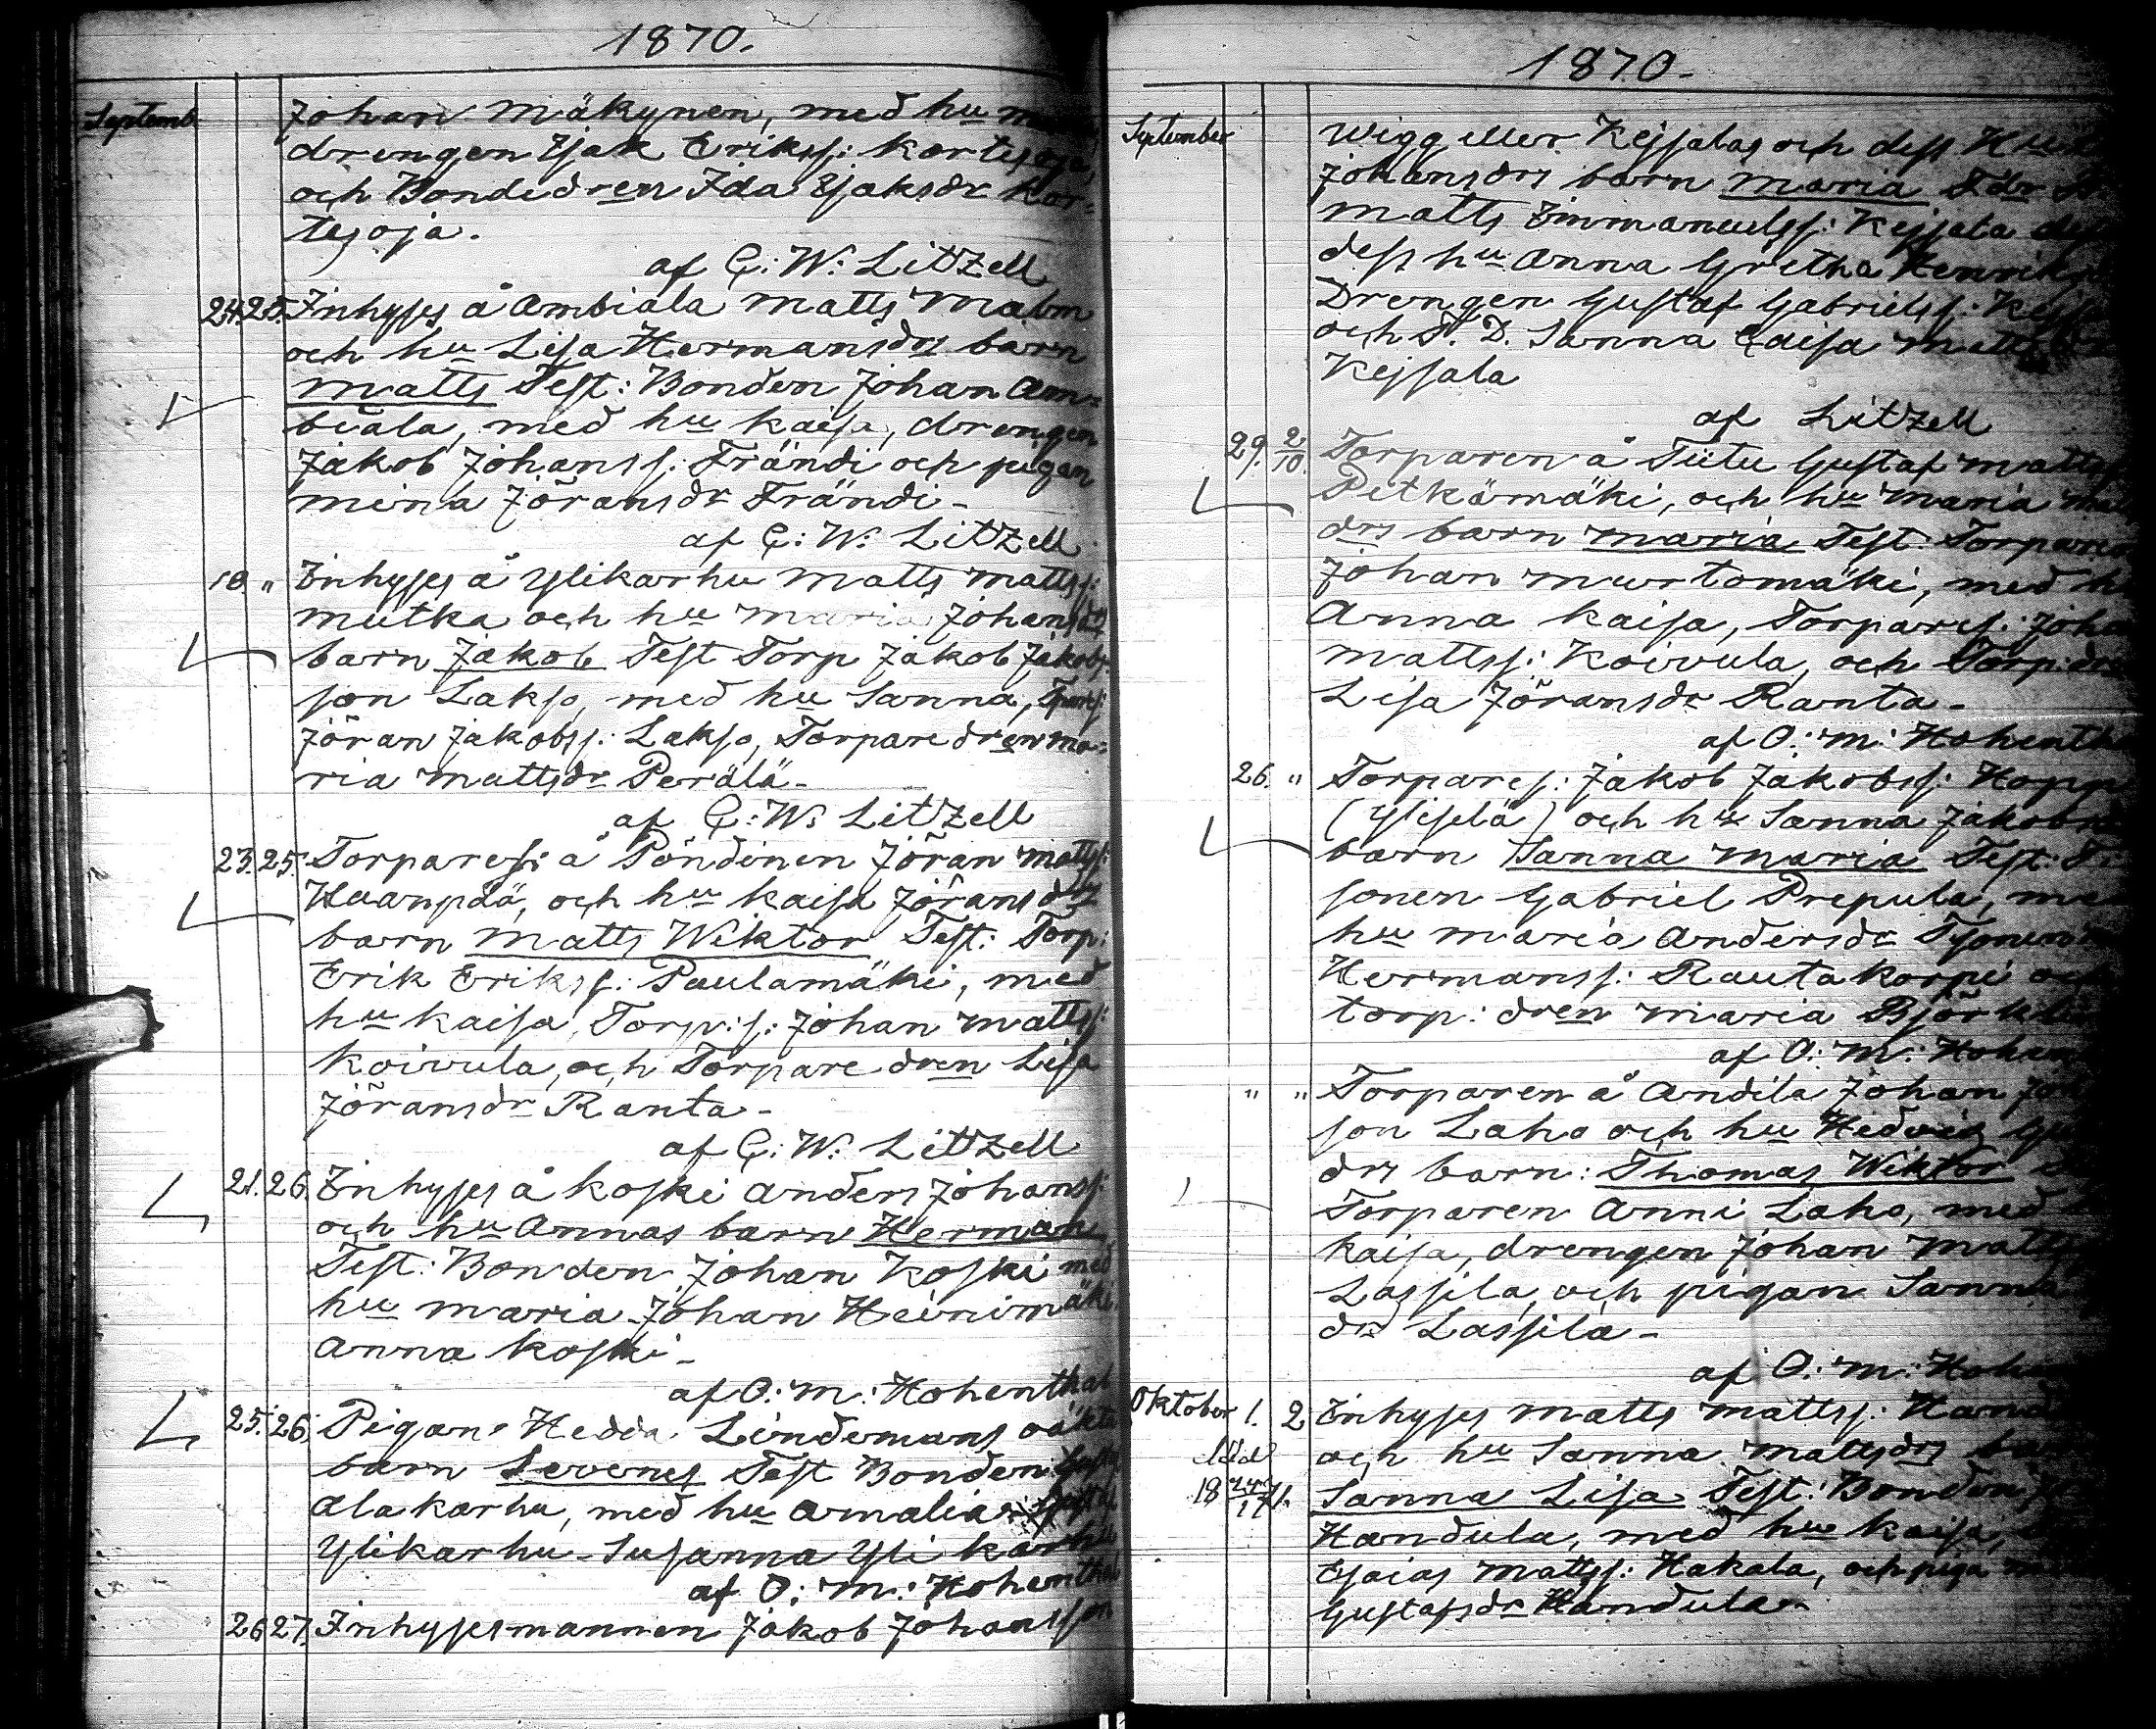 1870.
Septemb
Johan Mäkynen, med hu
drengen Isak Erikss: Kortesoja,
och Bondedren Ida Isaksdr Kor-
tesoja.
af C: W: Litzell
24. 25. Inhyses å Ambiala Matts Malm
och hu Lisa Hermansdrs barn
Matts Test: Bonden Johan Am-
biala, med hu Kaisa, drengen
Jakob Johanss: Frändi och pigan
Mina Jöransdr Frändi-
af C: W: Litzell
10. " Inhyses å Ylikarhu Matts Mattss:
Mutka och hu Maria Johansdrs
barn Jakob Test Torp Jakob Jakobs-
son Lakso, med hu Sanna,
Jöran Jakobss: Lakso, Torparedren Ma-
ria Mattsdr Perälä-
af C: W: Litzell
23. 25. Torparess: å Pöndinen Jöran Mattss:
Haanpää, och hu Kaisa Jöransdrs
barn Matts Wiktor Test: Torp:
Erik Erikss: Paulamäki, med
hu Kaisa, Torp: s: Johan Mattss:
Koivula, och Torpare dren Lisa
Jöransdr Ranta-
af C: W: Litzell
21. 26. Inhyses å Koski Anders Johanss:
och hu Annas barn Herman
Test: Bonden Johan Koski med
hu Maria- Johan Heinimäki
Anna Koski-
af O: M: Hohenthal
25. 26. Pigans Hedda Lindemans oäkta
barn Severus Test Bonden
Alakarhu, med hu Amalia-
Ylikarhu- Susanna Ylikarhu
af O: M: Hohenthal
26 27. Inhysesmannen Jakob Johansson
1870-
September
Wigg eller Kejsalas och dess Hu
Johansdrs barn Maria
Matts Immanuelss: Kejsala
dess hu Anna Gretha
Drengen Gustaf Gabrielss:
och T. D. Sanna Caisa
Kejsala
af Litzell
29. 2/10. Torparen å Tiitu Gustaf
Petkämäki, och hu Maria
drs barn Maria Test: Torparen
Johan Murtomäki, med
Anna Kaisa, Torpares:
Mattss: Koivula, och
Lisa Jöransdr Ranta-
af O: M: Hohentha
26. " Torpares: Jakob Jakobss:
(Yliselä) och hu Sanna
barn Sanna Maria Test:
sonen Gabriel Prepula,
hu Maria Andersdr
Hermanss: Rautakorpi och
torp: dren Maria
af O: M: Hohen
" " Torparen å Andila Johan
son Laho och hu Hedvig
drs barn: Thomas Wiktor
Torparen Anni Laho, med
Kaisa, drengen Johan
Lassila, och pigan Sanna
dr Lassila-
af O: M: Hohen
Oktober 1. 2 Inhyses Matts Mattss:
och hu Sanna Mattsdrs
Sanna Lisa Test: Bonden
Handula, med hu Kaisa,
Esaias Mattss: Hakala, och piga
Gustafsdr Handula-